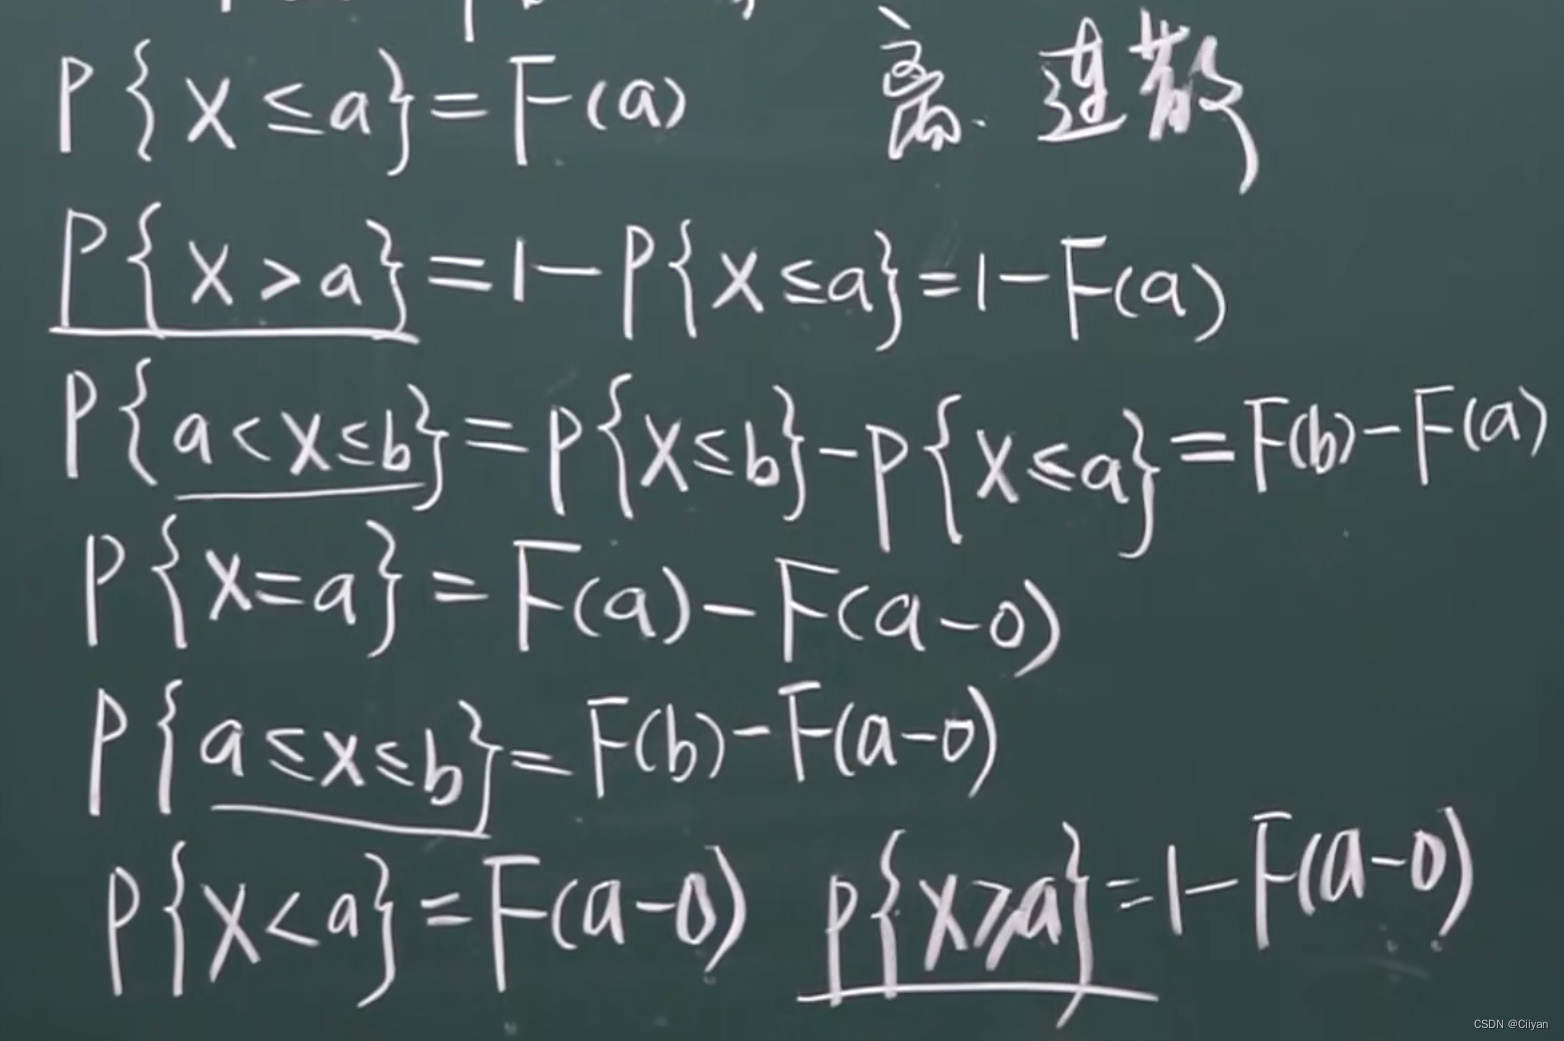 P{X≤a}=F(a) 离.
P{X>a}=1-P{X≤a}=1-F(a)
P{a<X≤b}=P{X≤b}-P{X≤a}=F(b)-F(a)
P{X=a}=F(a)-F(a-0)
P{a≤X≤b}=F(b)-F(a-0)
P{X<a}=F(a-0) P{X≥a}=1-F(a-0)
CSDN @Ciiyan